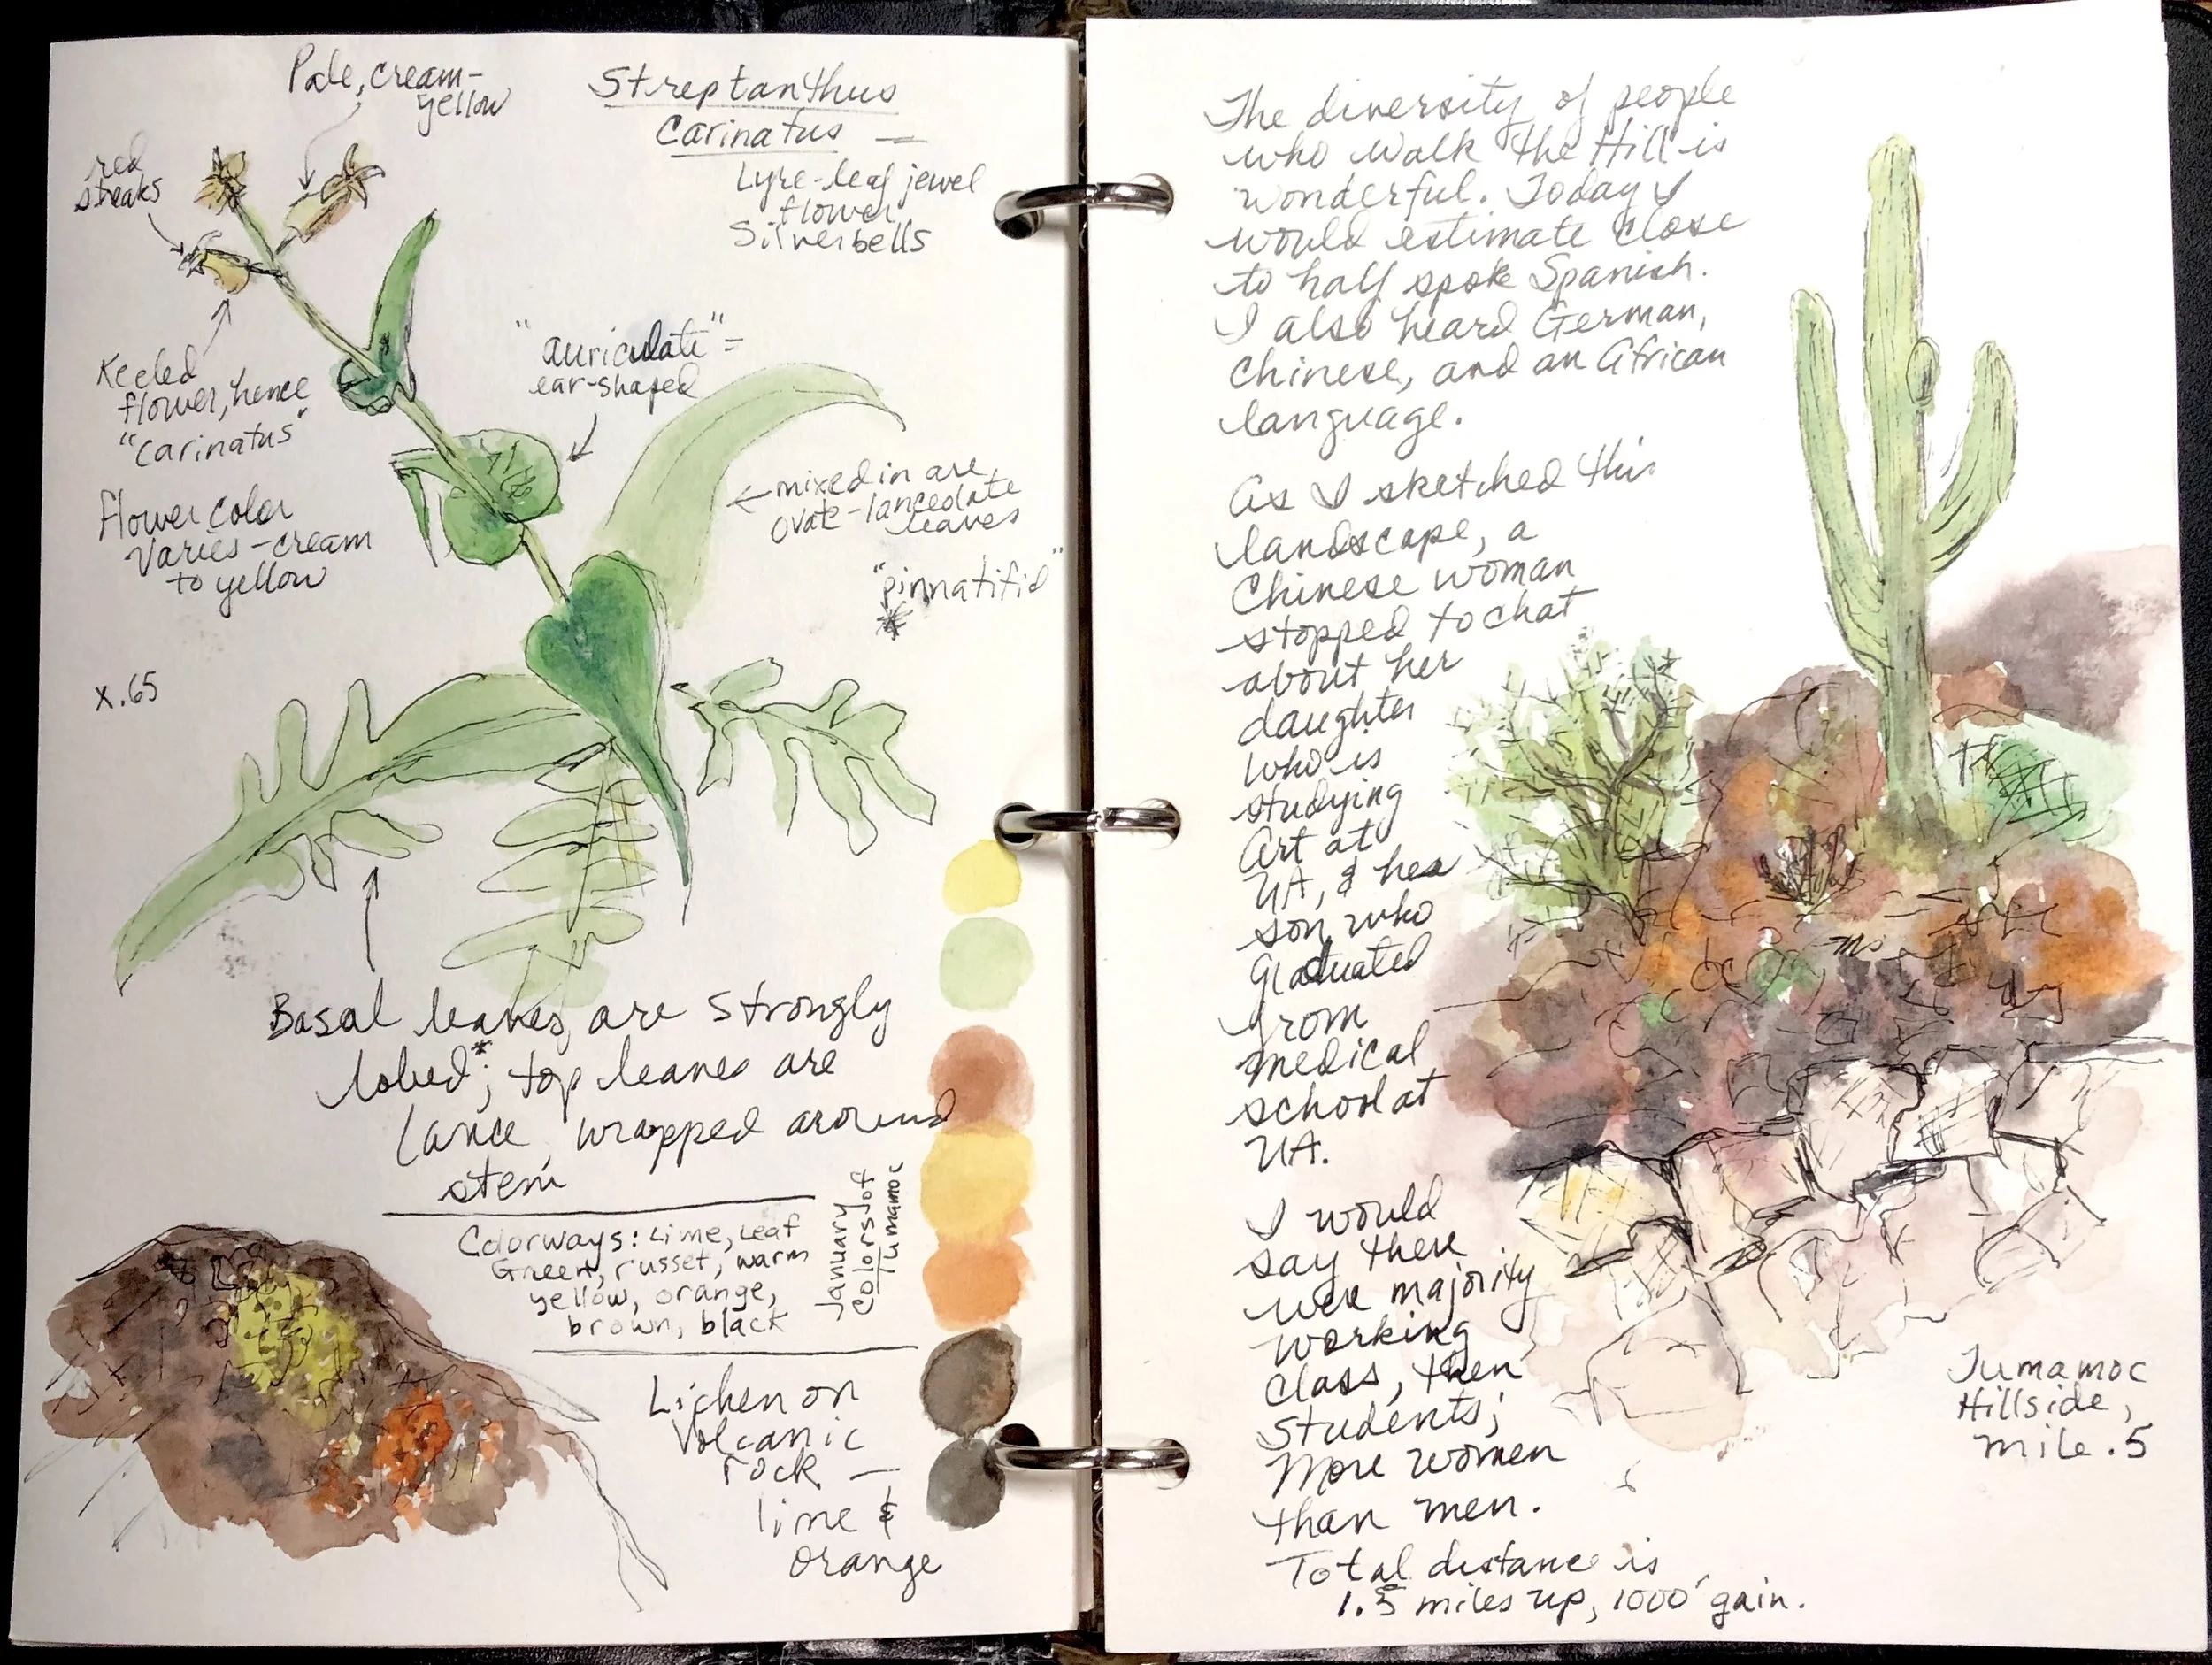 Pale, cream-
yellow
Streptanthus
Carinatus —
Lyre-leaf jewel
flower
Silverbells
red
streaks
Keeled
flower, hence
"Carinatus"
"auriculate" =
ear-shaped
Flower color
Varies - cream
to yellow
← mixed in are
ovate-lanceolate
leaves
"pinnatifid"
*
x.65
Basal leaves are strongly
lobed*; top leaves are
lance, wrapped around
stem
Colorways: Lime, Leaf
Green, russet, warm
yellow, orange,
brown, black
January
Colors of
Tumamoc
Lichen on
Volcanic
rock —
lime &
orange
The diversity of people
who walk the Hill is
wonderful. Today I
would estimate close
to half spoke Spanish.
I also heard German,
Chinese, and an African
language.
As I sketched this
landscape, a
Chinese woman
stopped to chat
about her
daughter
who is
studying
Art at
UA, & her
son who
graduated
from
medical
school at
UA.
I would
say there
were majority
working
class, then
students;
More women
than men.
Total distance is
1.5 miles up, 1000' gain.
Tumamoc
Hillside,
mile .5